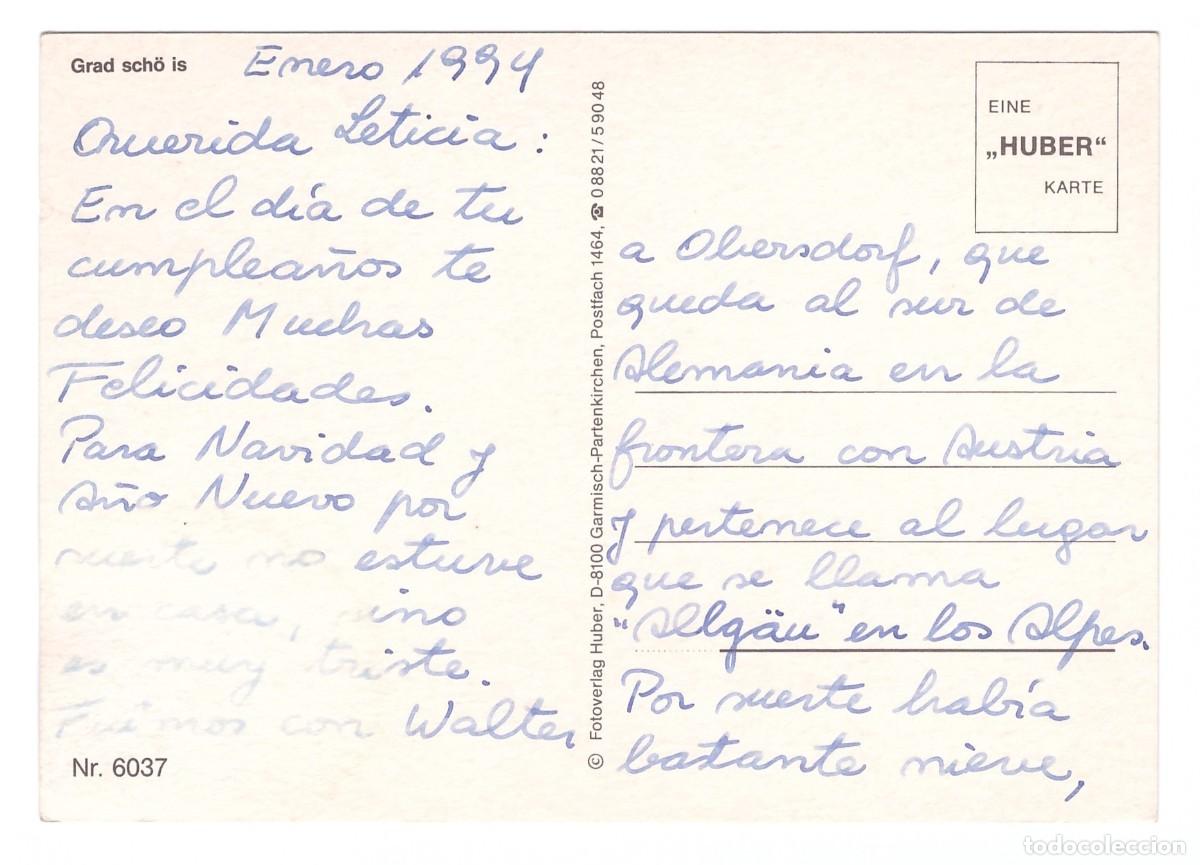 Grad schö is
Enero 1994
Querida Leticia :
En el día de tu
cumpleaños te
deseo Muchas
Felicidades.
Para Navidad y
Año Nuevo por
suerte no estuve
en casa, sino
es muy triste.
Fuimos con Walter
Nr. 6037
© Fotoverlag Huber, D-8100 Garmisch-Partenkirchen, Postfach 1464, ☎ 0 88 21 / 5 90 48
EINE
„HUBER“
KARTE
a Obersdorf, que
queda al sur de
Alemania en la
frontera con Austria
y pertenece al lugar
que se llama
"Allgäu" en los Alpes.
Por suerte había
bastante nieve,
todocoleccion